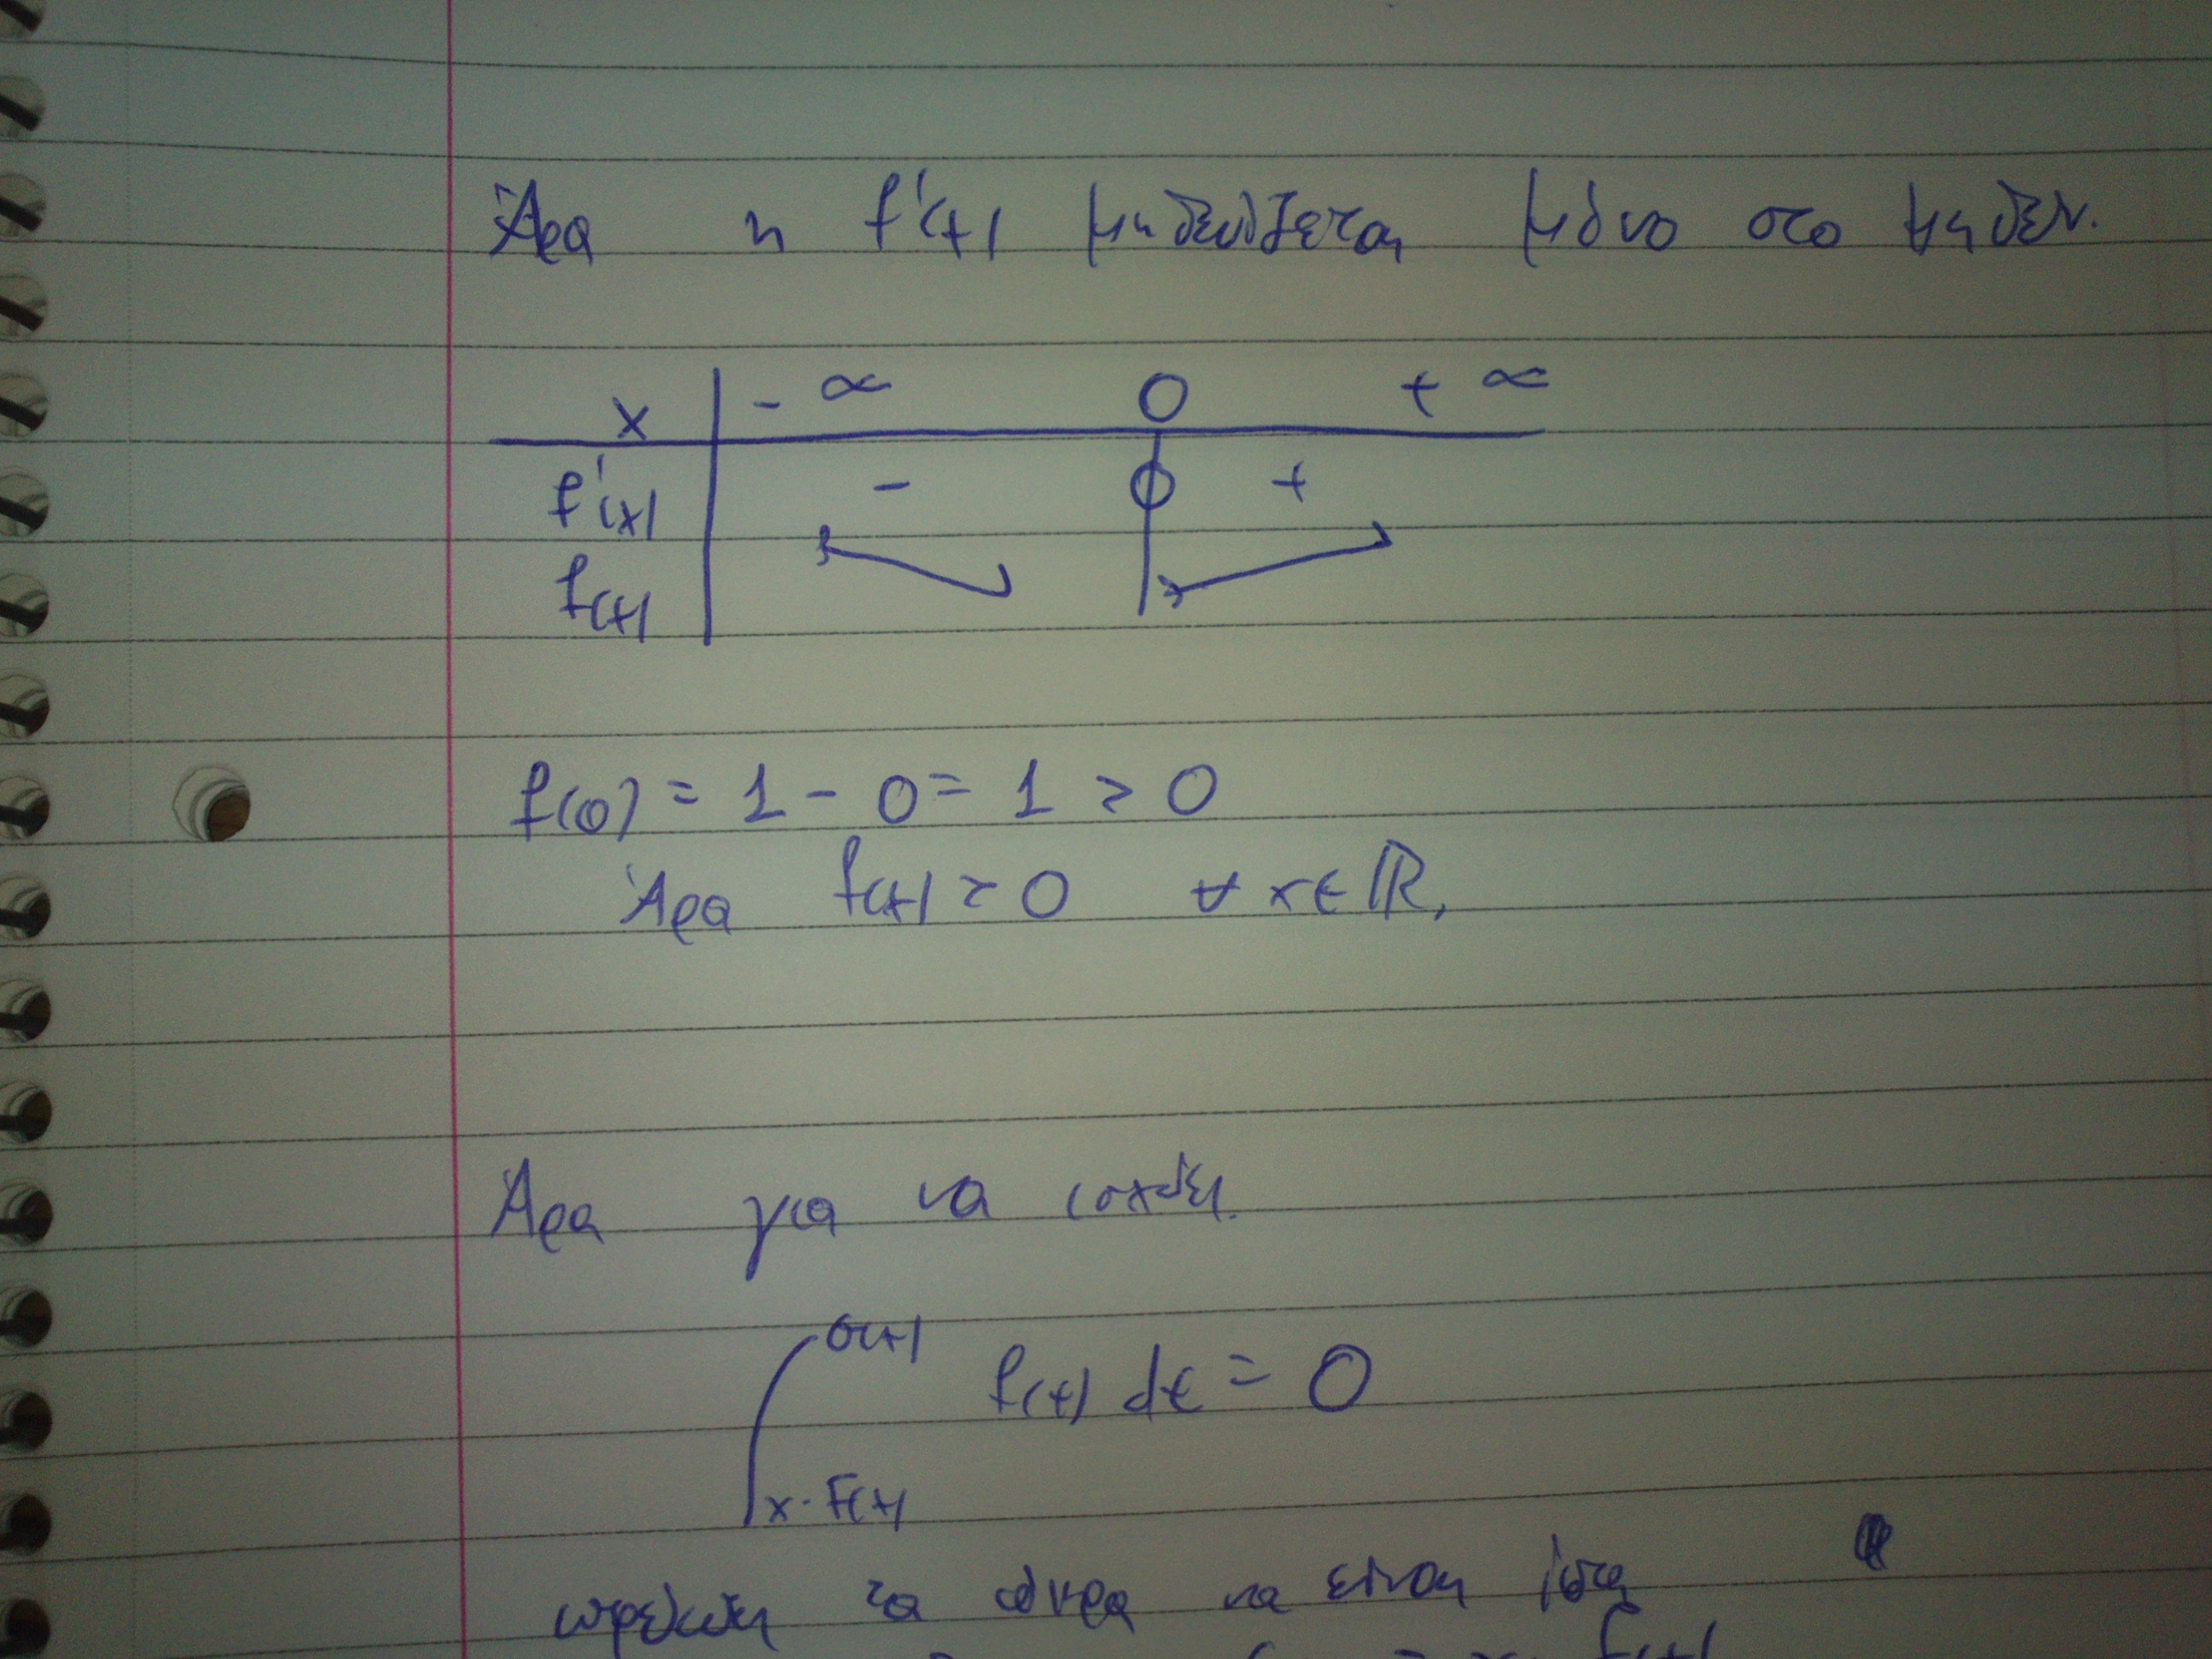 Άρα η f'(x) μηδενίζεται μόνο στο μηδέν.
x | -∞ 0 +∞
f'(x) | - 0 +
f(x)
f(0) = 1 - 0 = 1 > 0
Άρα f(x) > 0 ∀ x ∈ ℝ,
Άρα για να ισχύει
∫ G(x) f(t) dt = 0
x · F(x)
πρέπει τα άκρα να είναι ίσα
f(x)